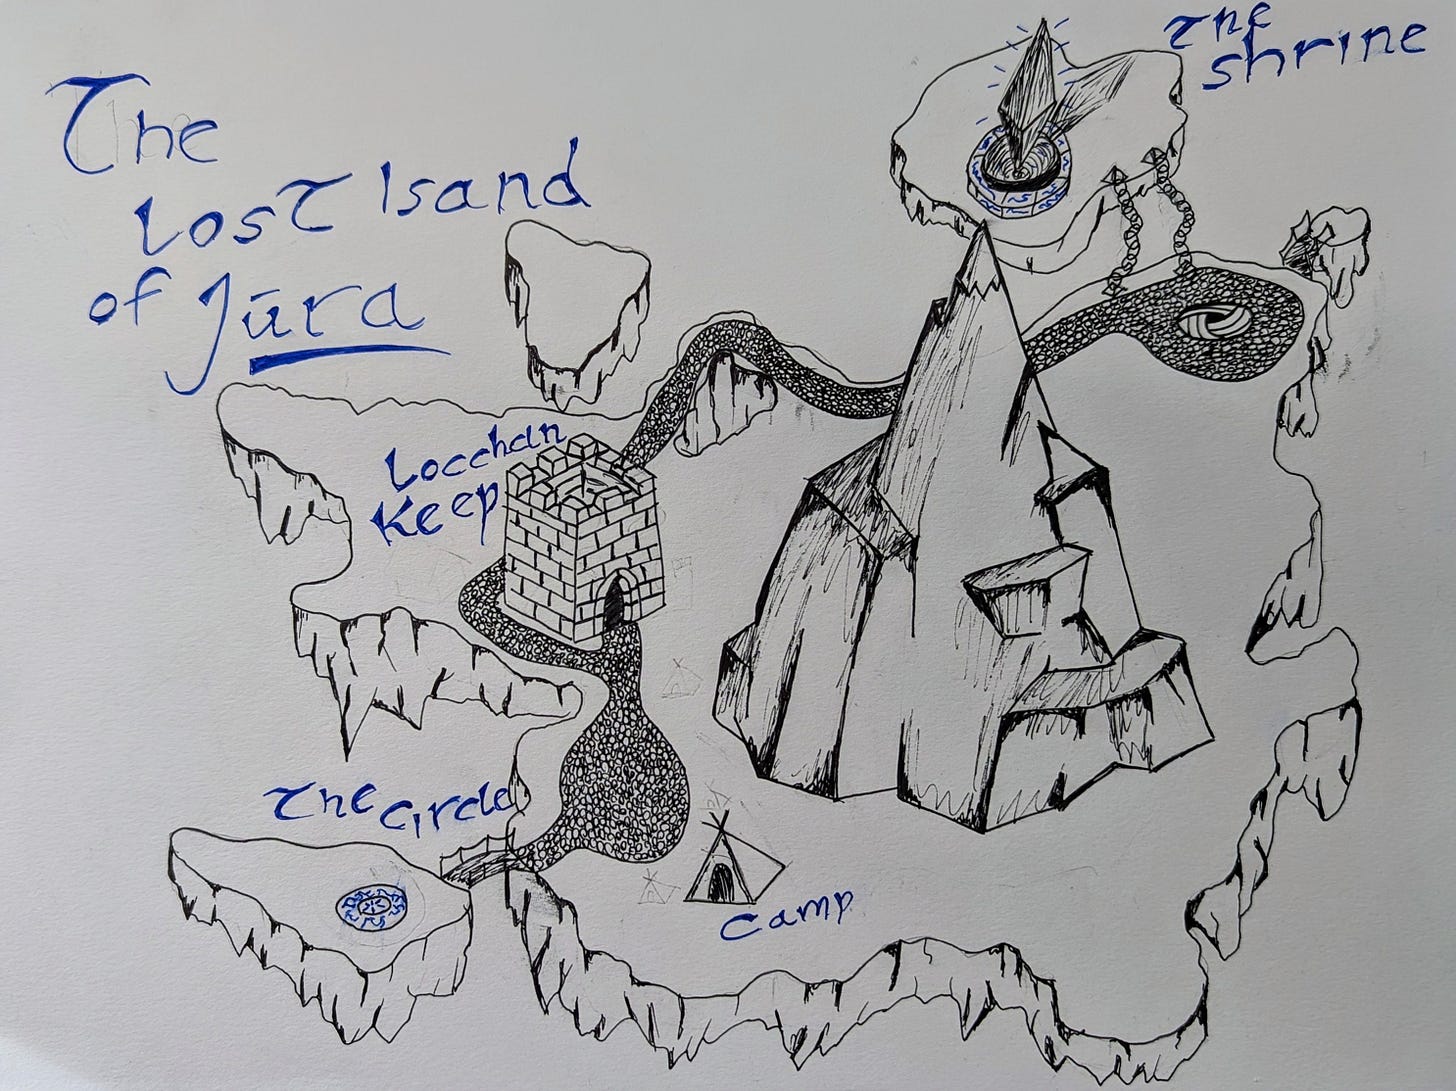 The
Lost Isand
of Jūra
The
Shrine
Locchan
Keep
The Circle
Camp